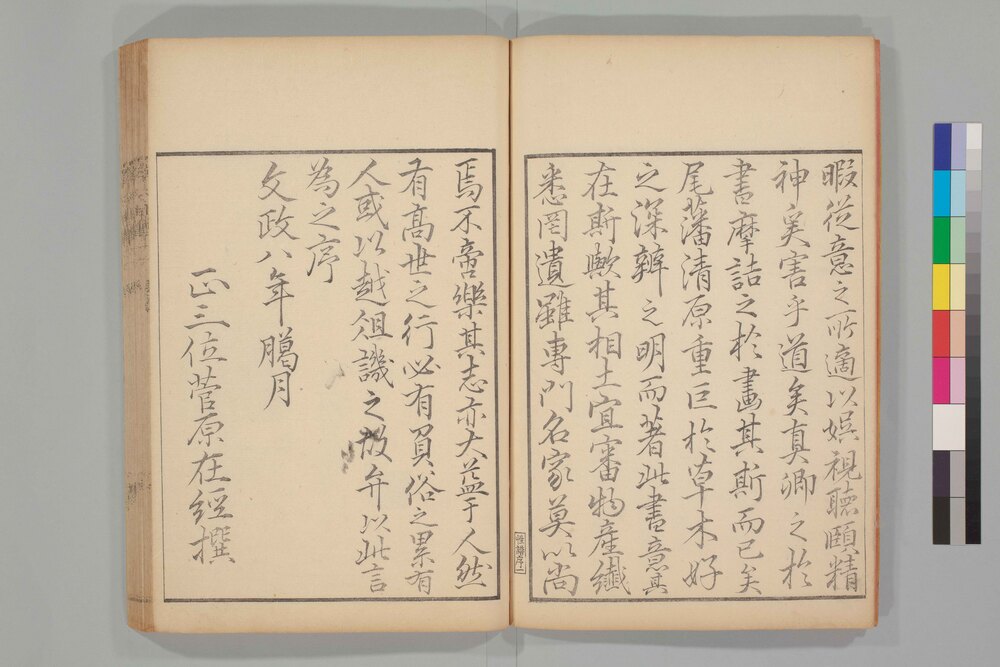 暇從意之所適以娯視聴頤精
神奚害乎道矣真卿之於
書摩詰之於畫其斯而已矣
尾藩清原重巨於草木好
之深辨之明而著此書意其
在斯歟其相土宜審物產纎
悉罔遺雖專門名家莫以尚
焉不啻樂其志亦大益于人然
有髙世之行必有負俗之累有
人或以越俎譏之故并以此言
為之序
文政八年臈月
正三位菅原在經撰